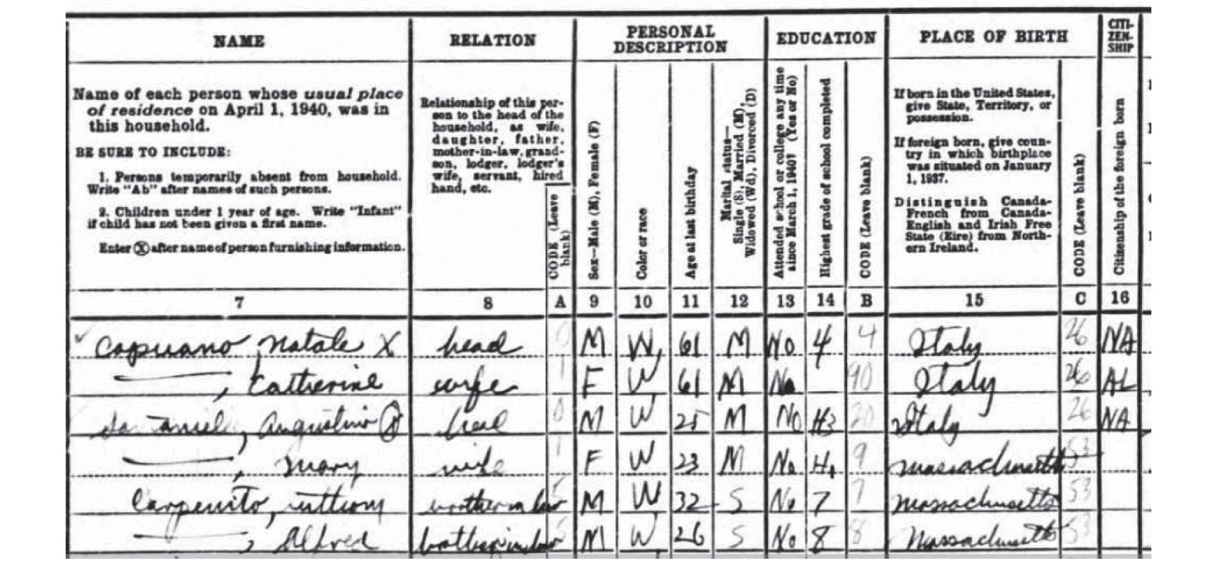 NAME RELATION PERSONAL DESCRIPTION EDUCATION PLACE OF BIRTH CITI-ZEN-SHIP
Name of each person whose usual place
of residence on April 1, 1940, was in
this household.
BE SURE TO INCLUDE:
1. Persons temporarily absent from household.
Write "Ab" after names of such persons.
2. Children under 1 year of age. Write "Infant"
if child has not been given a first name.
Enter Ⓧ after name of person furnishing information.
Relationship of this per-
son to the head of the
household, as wife,
daughter, father,
mother-in-law, grand-
son, lodger, lodger's
wife, servant, hired
hand, etc.
CODE (Leave
blank)
Sex—Male (M), Female (F)
Color or race
Age at last birthday
Marital status—
Single (S), Married (M),
Widowed (Wd), Divorced (D)
Attended school or college any time
since March 1, 1940? (Yes or No)
Highest grade of school completed
CODE (Leave blank)
If born in the United States,
give State, Territory, or
possession.
If foreign born, give coun-
try in which birthplace
was situated on January
1, 1937.
Distinguish Canada-
French from Canada-
English and Irish Free
State (Eire) from North-
ern Ireland.
CODE (Leave blank)
Citizenship of the foreign born
7 8 A 9 10 11 12 13 14 B 15 C 16
Capuano, Natale X head 0 M W 61 M No 4 4 Italy 26 NA
, Catherine wife 1 F W 61 M No 90 Italy 26 AL
Augustino head 0 M W 25 M No H3 30 Italy 26 NA
, Mary wife 1 F W 23 M No 9 Massachusetts 53
Carpenito, Anthony brother in law 5 M W 32 S No 7 7 Massachusetts 53
, Alfred brother in law 5 M W 26 S No 8 8 Massachusetts 53